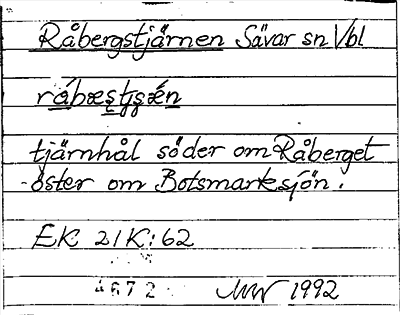 Råbergstjärnen Sävar sn Vbl
råbæstjæn
tjärnhål söder om Råberget
öster om Botsmarksjön.
EK 21K:62
4672 1992